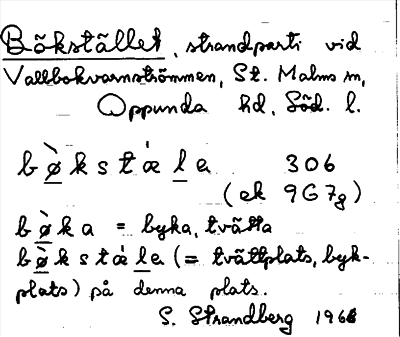 Bökstället, strandparti vid
Vallbokvarnströmmen, St. Malms sn,
Oppunda hd, Söd. l.
bø̀kstǽla 306
(ek 9G7g)
bø̀ka = byka, tvätta
bø̀kstǽla (= tvättplats, byk-
plats) på denna plats.
S. Strandberg 1968